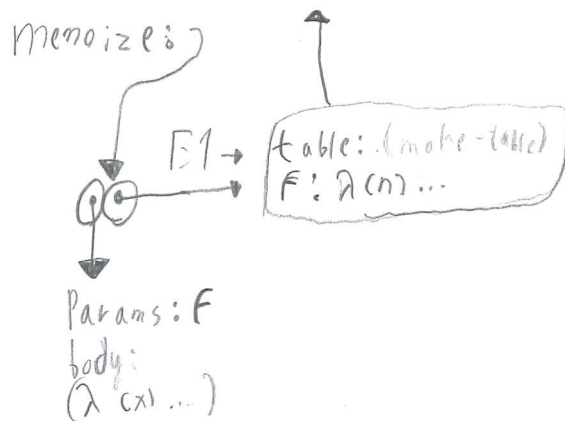 memoize:
E1 →
table: (make-table)
F: λ(n) ...
Params: F
body:
(λ (x) ...)